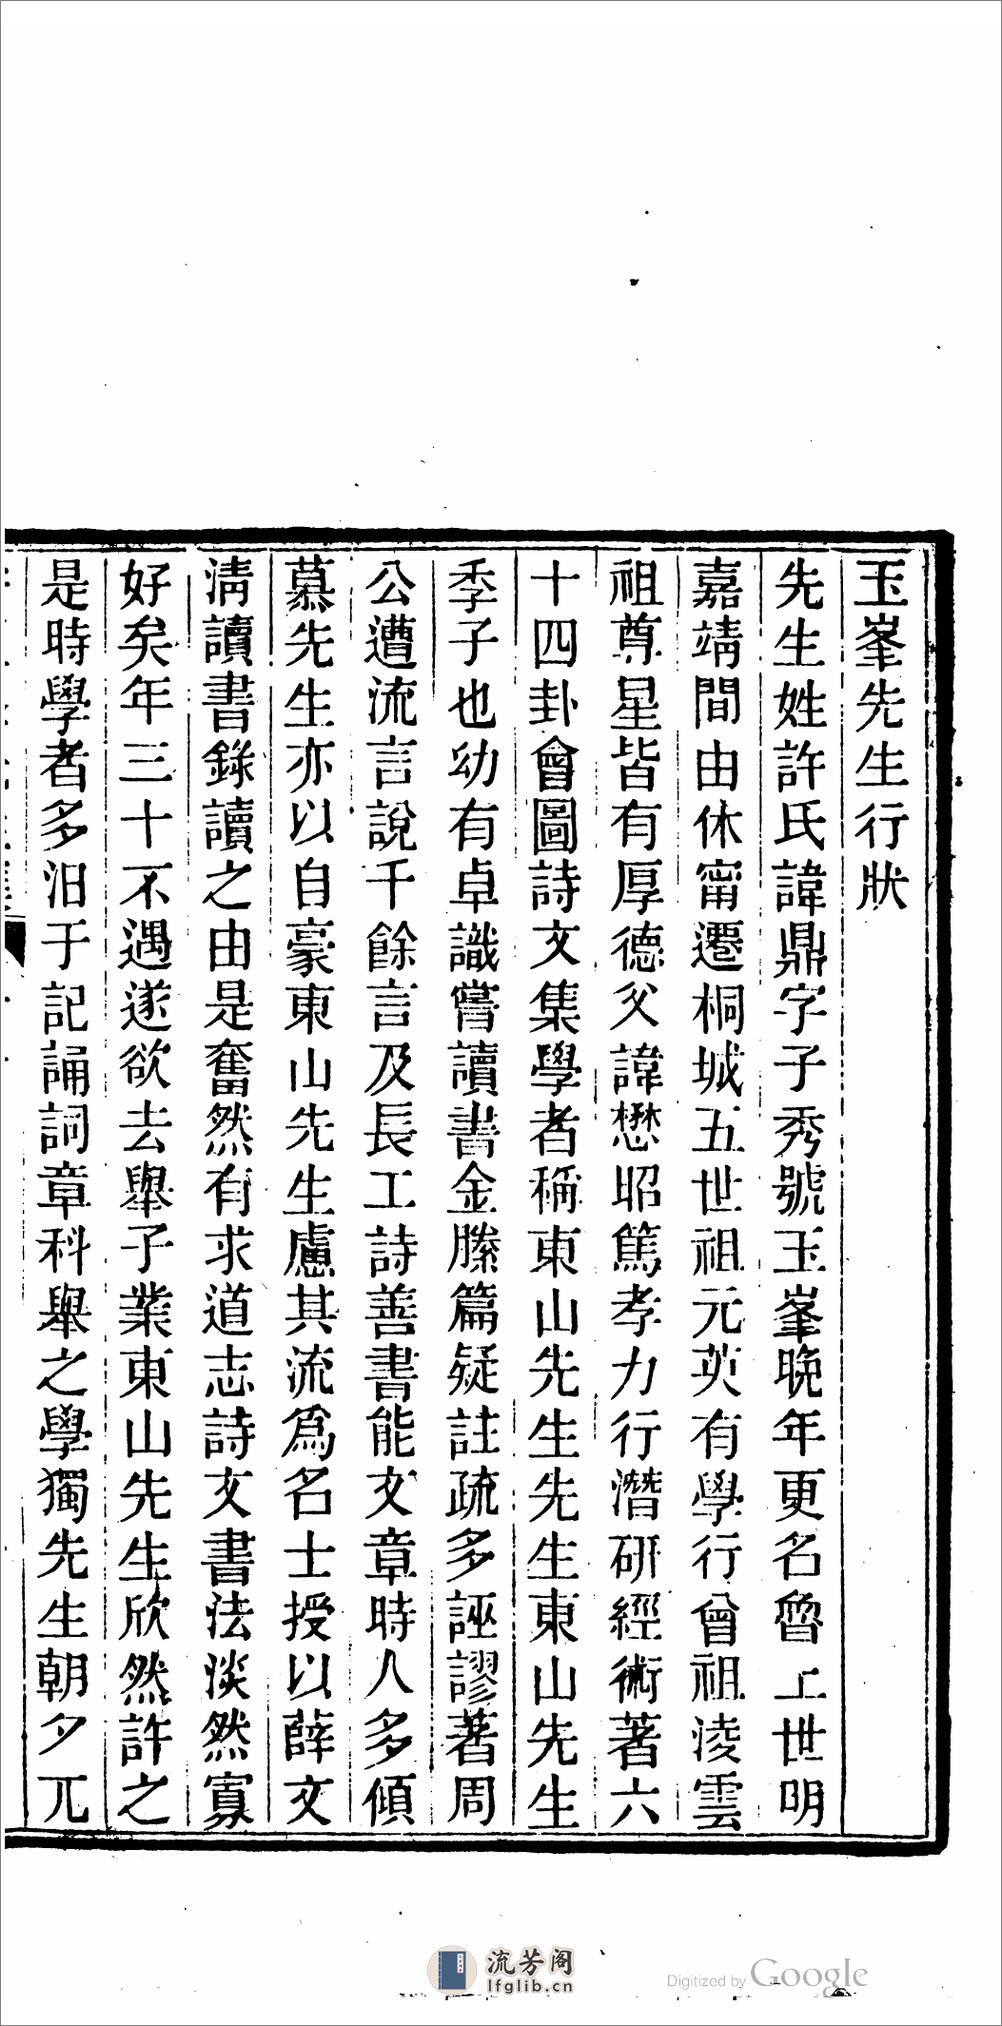 玉峯先生行狀
先生姓許氏諱鼎字子秀號玉峯晚年更名魯上世明
嘉靖間由休甯遷桐城五世祖元英有學行曾祖淩雲
祖尊星皆有厚德父諱懋昭篤孝力行潛研經術著六
十四卦會圖詩文集學者稱東山先生先生東山先生
季子也幼有卓識嘗讀書金縢篇疑註疏多誣謬著周
公遭流言說千餘言及長工詩善書能文章時人多傾
慕先生亦以自豪東山先生慮其流爲名士授以薛文
淸讀書錄讀之由是奮然有求道志詩文書法淡然寡
好矣年三十不遇遂欲去舉子業東山先生欣然許之
是時學者多汨于記誦詞章科舉之學獨先生朝夕兀
流芳阁
lfglib.cn
Digitized by Google